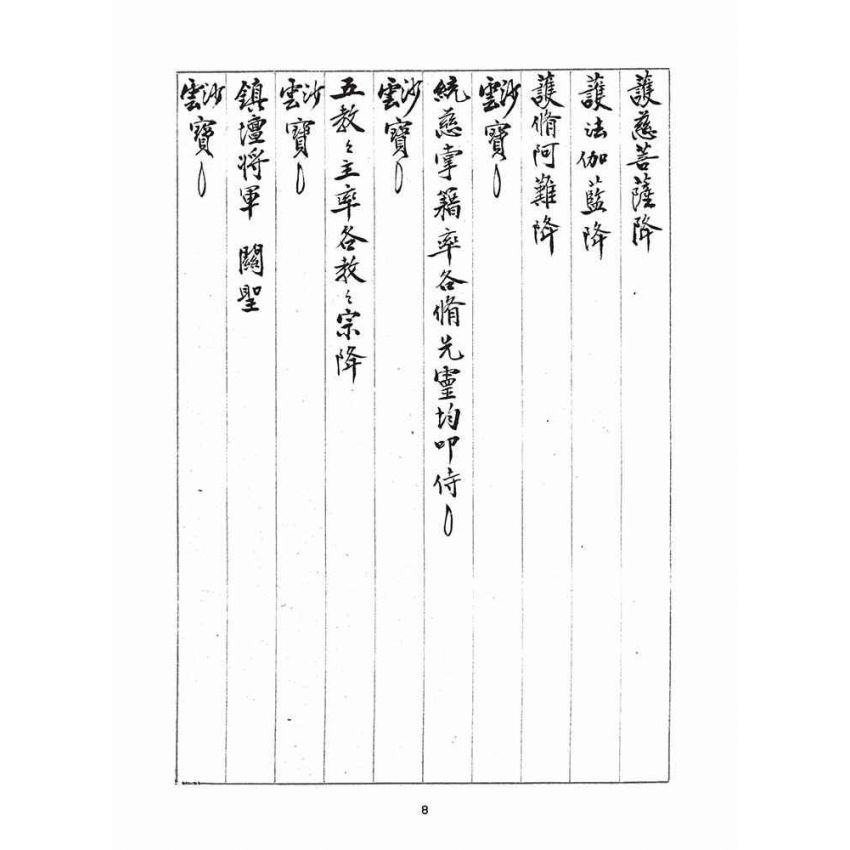 護慈菩薩降
護法伽藍降
護脩阿難降
雲沙寶()
統慈掌籍率各脩元靈均叩侍()
雲沙寶()
五教々主率各教々宗降
雲沙寶()
鎮壇將軍 關聖
雲沙寶()
8